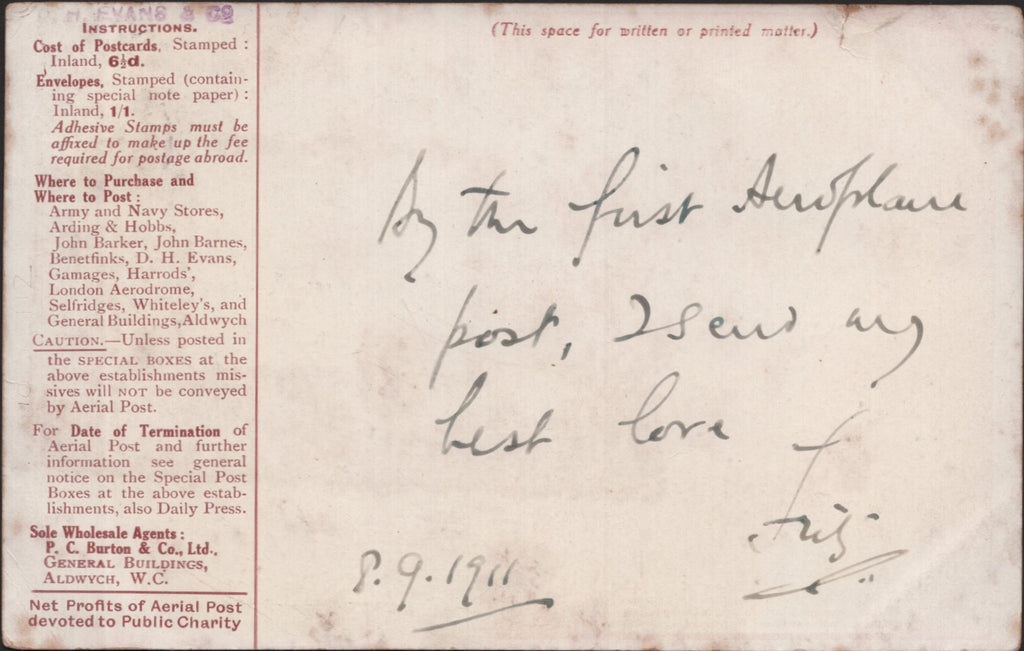 H. EVANS & CO
INSTRUCTIONS.
Cost of Postcards, Stamped :
Inland, 6½d.
Envelopes, Stamped (contain-
ing special note paper) :
Inland, 1/1.
Adhesive Stamps must be
affixed to make up the fee
required for postage abroad.
Where to Purchase and
Where to Post :
Army and Navy Stores,
Arding & Hobbs,
John Barker, John Barnes,
Benetfinks, D. H. Evans,
Gamages, Harrods',
London Aerodrome,
Selfridges, Whiteley's, and
General Buildings, Aldwych
CAUTION.—Unless posted in
the SPECIAL BOXES at the
above establishments mis-
sives will NOT be conveyed
by Aerial Post.
For Date of Termination of
Aerial Post and further
information see general
notice on the Special Post
Boxes at the above estab-
lishments, also Daily Press.
Sole Wholesale Agents :
P. C. Burton & Co., Ltd.,
GENERAL BUILDINGS,
ALDWYCH, W.C.
Net Profits of Aerial Post
devoted to Public Charity
(This space for written or printed matter.)
By the first Aeroplane
post, I send my
best love
Fritz
8.9.1911